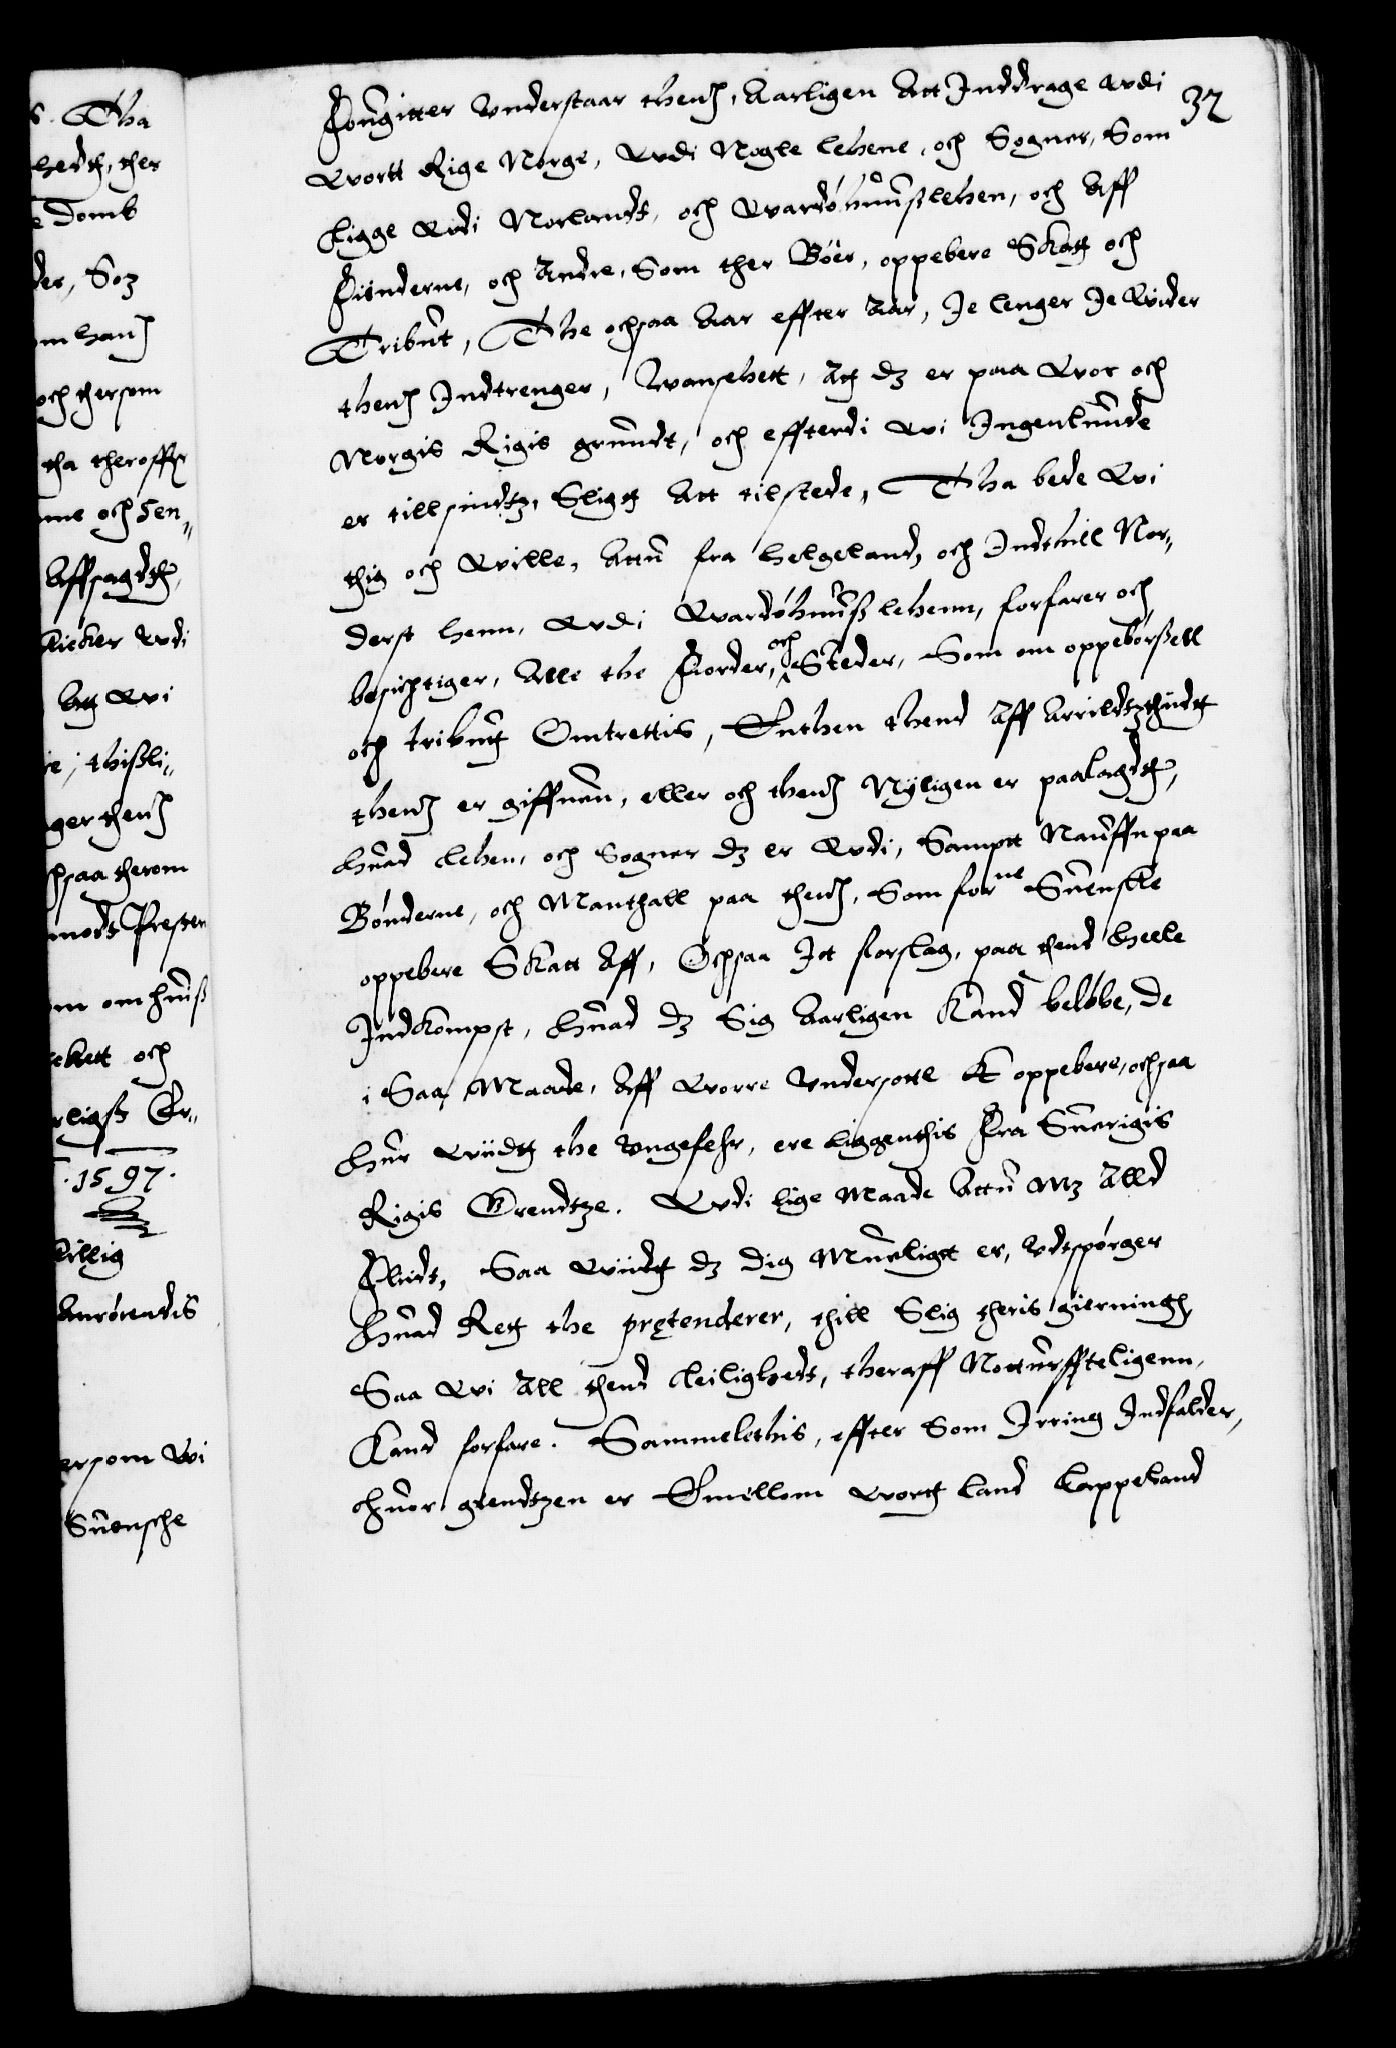 s. Tha
hedtt, ther
e Domb
der, Som
om hans
och thersom
tha theroffr
nne och sen„
Affsagdtt,
kicker Vdi
Att Wi
ie, thißli„
ger thend
schsaa therom
modt Presten
om om huuß
ebett och
rligst Er„
. 1597.
killig
Anrørendis
ersom Wi
Suensche
37
Fougitter Vnderstaar thend, Aarligen Att Inddrage Vdi
Wortt Rige Norge, Vdi Nogle lehene, och Sogner, Som
Ligge Vdi Norlandt, och Wardøhuußlehen, och Aff
Finderne, och Andre, Som ther Boer, oppebere Skatt och
Tribut, The ochsaa Aar effter Aar, Je lenger Je Wider
thend Indtrenger, Wanseett, Att dz er paa Wor och
Norgis Rigis grundt, och effterdi Wi Ingenlunde
er tillsindtz, Sligt Att tilstede, Tha bede Wi
thig och Wille, Attu fra Helgeland, och Indthill Nor„
derst henn, Vdi Wardøhuuß lehenn, forfarer och
besichtiger, Alle the Fiorder, och Steder, Som om oppebørßell
och tributt Omtrettis, Enthen thend Aff Arrildtzthidt
thend er giffuen, eller och thend Nyligen er paalagdtt,
huad Lehen, och Sogner dz er Vdi, Samptt Nauffn paa
Bønderne, och Manthall paa thend, Som forne Suenske
oppebere Skatt Aff, Ochsaa Jt forslag, paa thend heele
Indkompst, huad dz Sig Aarligen Kand beløbe, de
i Saa Maade, Aff Worre Vndersotte K oppebere, ochsaa
huor Wiidtt the Vngefehr, ere liggenthis Fra Suerigis
Rigis Grendtze. Vdi lige Maade Attu Mz Alld
Flidt, Saa Wiidtt dz dig Mueligtt er, Vdtspørger
Huad Rett the prętenderer, thill Slig theris gierningh
Saa Wi All thend Leilighedt, theraff Nottürffteligenn,
Kand forfare. Sammelethis, effter Som Irring Indfalder,
huor grendtzen er Emellom Wortt land Lappeland